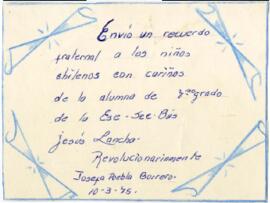 Envio un recuerdo
fraternal a los niños
chilenos con cariños
de la alumna de 7mo grado
de la Esc-Sec-Bás
jesús Lancha.
Revolucionariamente
Josefa Puebla Borrero.
10-3-75.